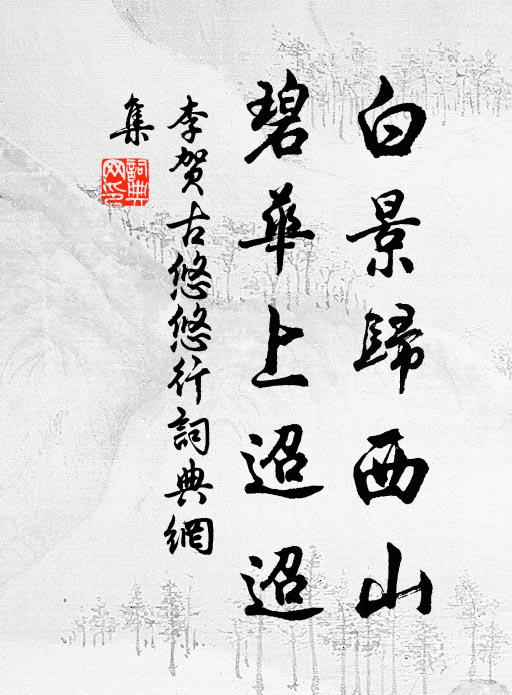 白景歸西山
碧華上迢迢
李贺古悠悠行詞典網
集
詞典网印